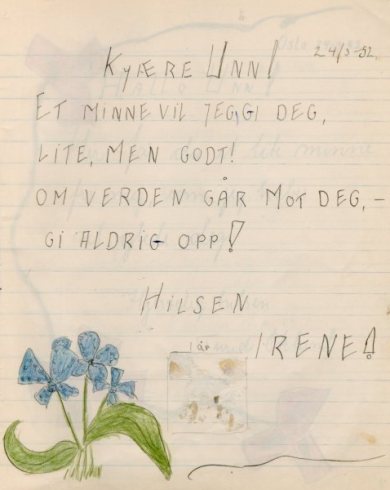 24/3-52.
Kyære Unn!
Et minne vil jeg gi deg,
lite, men godt!
om verden går mot deg,-
gi aldrig opp!
Hilsen
Irene!